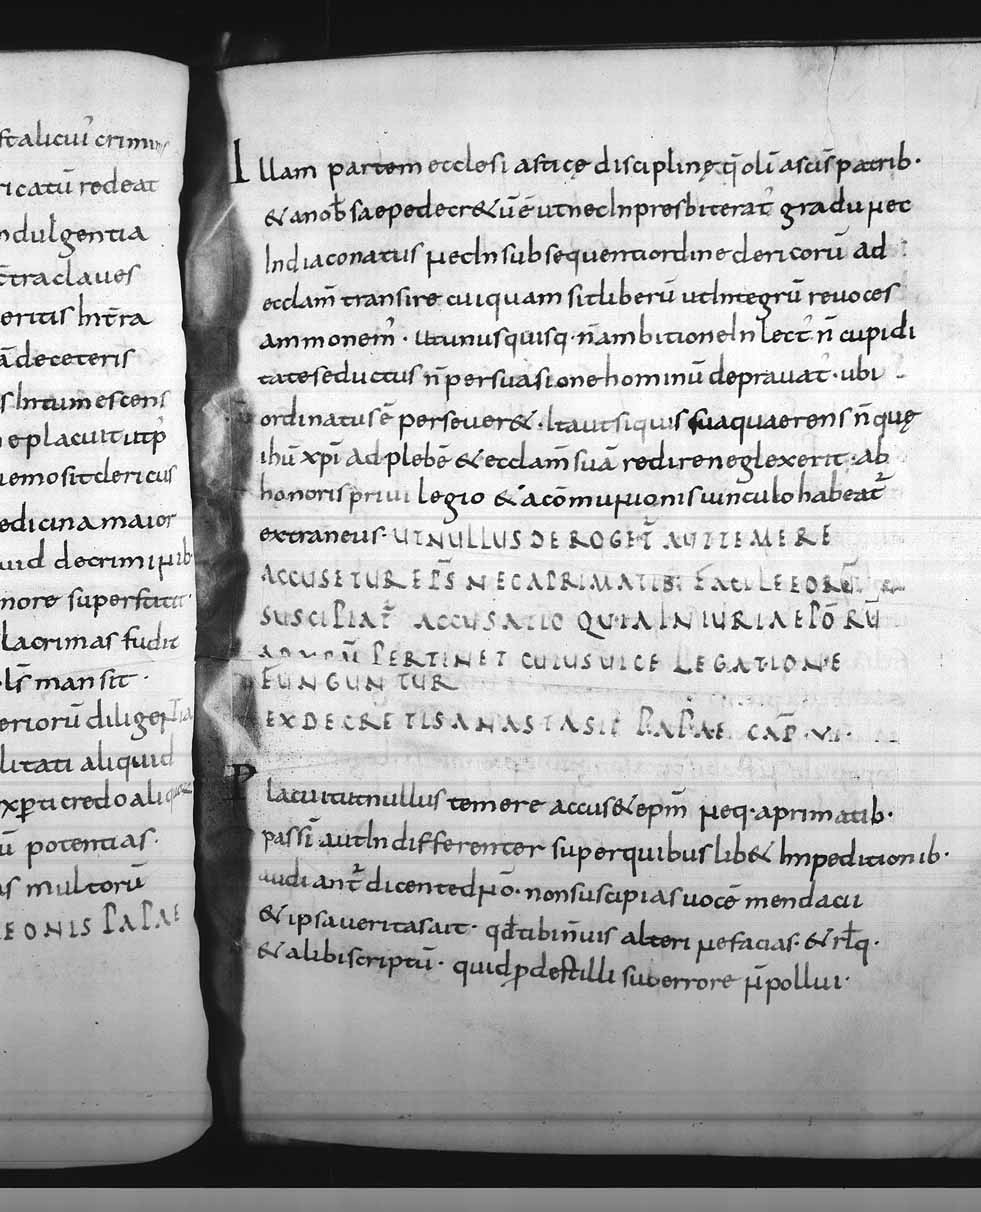 st alicui' crimin
ricatū redeat
ndulgentia
c̄tra claues
eritis Intra
ā de ceteris
s Intumescens
e placuit ut p̄
nemo sit clericus
edicina maior
uid de crimiNib
nore superstitit
lacrimas fudit
l̄s mansit ·
eriorū diligentia
litati aliquid
xp̄ti credo aliquē
ū potentias ·
as multorū
EONIS PAPAE
Illam partem ecclesiasticę disciplinę q̄ olī a sc̄is patrib·
& a nob̄ saepe decr&ū ē ut nec In presbiterat' gradu Nec
In diaconatus Nec In subsequenti ordine clericorū ad
eccl̄am transire cuiquam sit liberū ut Integrū reuoces
ammonem' · ut unusquisq· n̄ ambitione In lect' n̄ cupidi
tate seductus n̄ persuasione hominū deprauat' · ubi
ordinatus ē perseuer& · Ita ut siquis sua quaerens n̄ quę
ih̄u xp̄i ad plebē & eccl̄am suā redire neglexerit · ab
honoris priui legio & a cōmuNionis uinculo habeat̄
extraneus · UT NULLUS DEROGET̄ AUT TEMERE
ACCUSETUR EP̄S NEC A PRIMATIB; FACILE EORŪ
SUSCIPIAT̄ ACCUSATIO QUIA INIURIA EP̄ORU
PERTINET CUIUS UICE LEGATIONE
FUNGUNTUR
EX DECRETIS ANASTASII PAPAE CAP̄·VI·
Placuit ut nullus temere accus& ep̄m Neq· a primatib·
passī aut Indifferenter super quibuslib& Inpeditionib·
audiant̄ dicente dNō · non suscipias uocē mendacii
& ipsa ueritas ait · qd̄ tibi n̄ uis alteri Ne facias · & rl̄q·
& alibi scriptū · quid p̄dest illi suo errore N̄ pollui ·